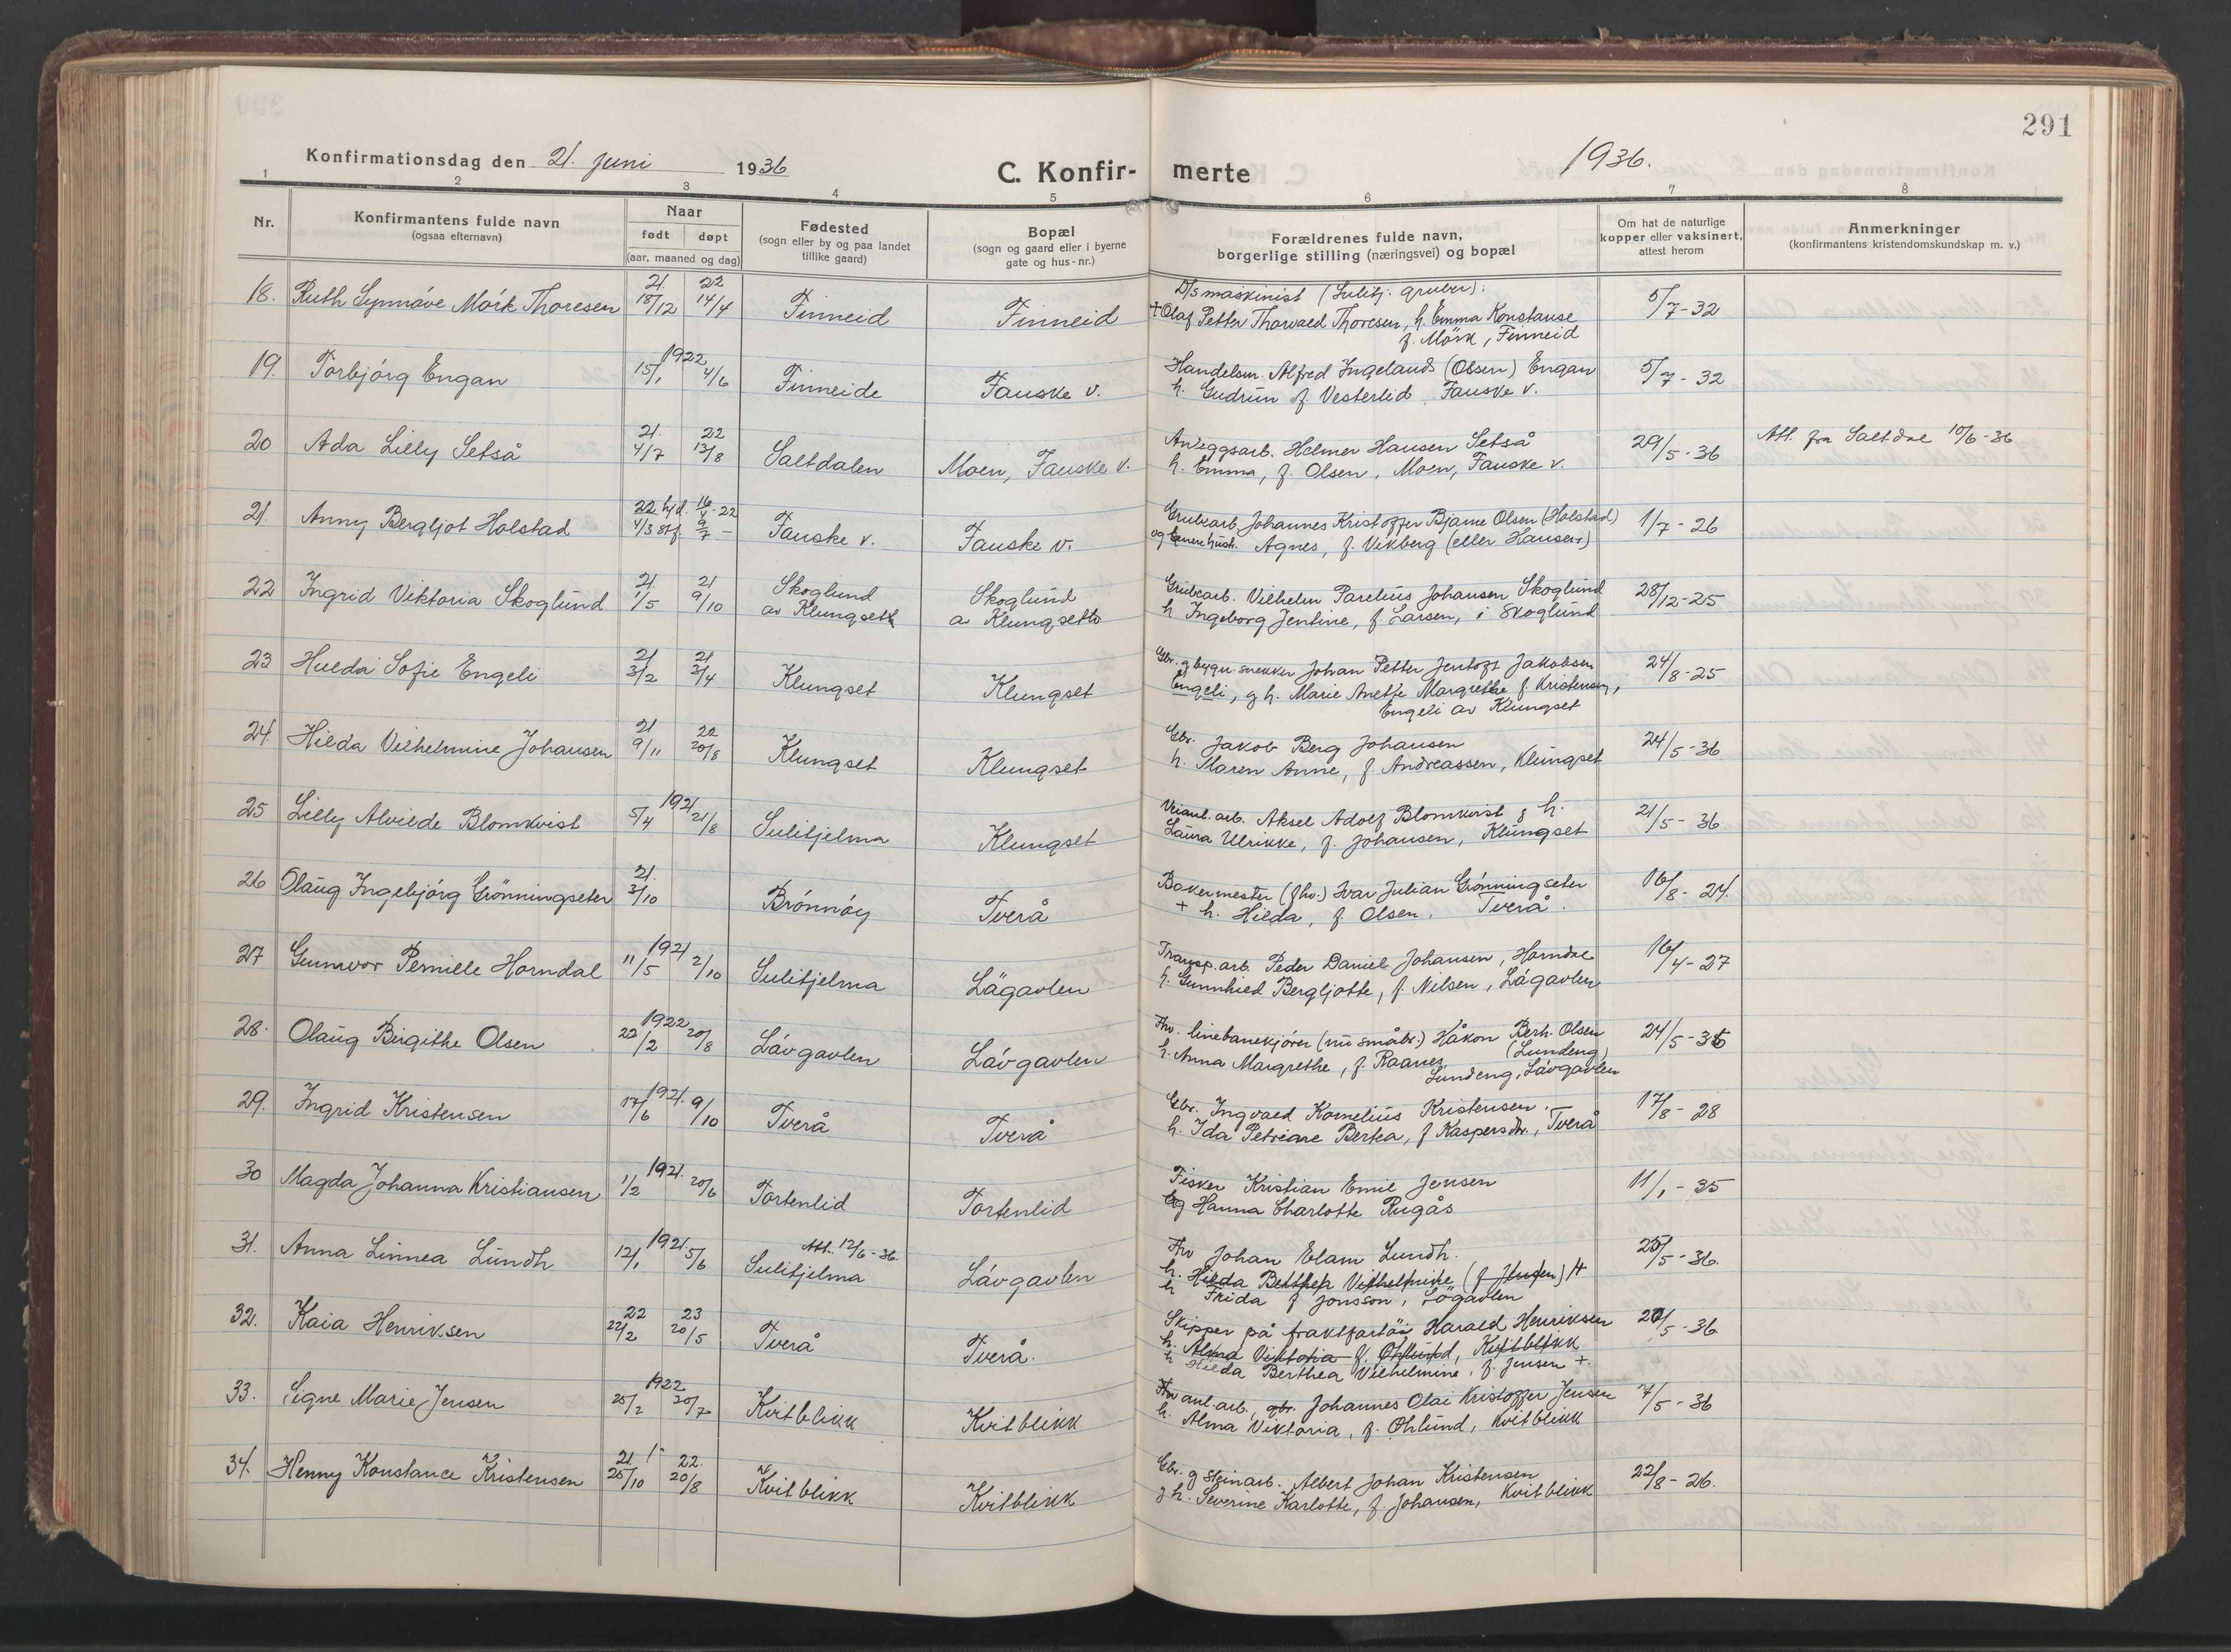 291
Konfirmationsdag den 21. juni 1936
C. Konfir- merte
1936.
1 2 3 4 5 6 7 8
Nr.
Konfirmantens fulde navn
(ogsaa efternavn)
Naar
født døpt
(aar, maaned og dag)
Fødested
(sogn eller by og paa landet
tillike gaard)
Bopæl
(sogn og gaard eller i byerne
gate og hus-nr.)
Forældrenes fulde navn,
borgerlige stilling (næringsvei) og bopæl
Om hat de naturlige
kopper eller vaksinert,
attest herom
Anmerkninger
(konfirmantens kristendomskundskap m. v.)
D/s maskinist (Sulitj. gruber):
18. Ruth Synnöve Mörk Thoresen 21. 18/12 22 14/4 Finneid Finneid + Olaf Petter Thorvald Thoresen, h. Emma Konstanse 5/7-32
f. Mörk, Finneid
19. Torbjörg Engan 1922 15/1 4/6 Finneide Fauske v. Handelsm. Alfred Ingelands (Olsen) Engan 5/7-32
h. Gudrun f. Vesterlid, Fauske v.
20 Ada Lilly Setså 21. 4/7 22 13/8 Saltdalen Moen, Fauske v. Anleggsarb. Helmer Hansen Setså 29/5-36 Att. fra Saltdal 10/6-36
h. Emma, f. Olsen, Moen, Fauske v.
21. Anny Bergljot Holstad 22 hjd. 16/4-22
4/3 stf. 9/7 - Fauske v. Fauske v. Grubearb. Johannes Kristoffer Bjarne Olsen (Holstad) 1/7-26
og hust. Agnes, f. Vikberg (eller Hansen)
22 Ingrid Viktoria Skoglund 21. 1/5 21 9/10 Skoglund Skoglund Grubearb. Vilhelm Parelius Johansen Skoglund 28/12-25
av Klungsett a Klungsett h Ingeborg Jentine, f. Larsen, i Skoglund
23 Hulda Sofie Engeli 21 3/2 21 3/4 Klungset Klungset Gbr. g bygn. snekker Johan Petter Jentoft Jakobsen 24/8-25
Engeli, g h. Marie Anette Margrethe f. Kristensen,
Engeli av Klungset
24. Hilda Vilhelmine Johansen 21 9/11 22 20/8 Klungset Klungset Gbr. Jakob Berg Johansen 24/5-36
h. Maren Anne, f. Andreassen, Klungset
25 Lilly Alvilde Blomkvist 1921 5/4 21/8 Sulitjelma Klungset Veianl.arb. Aksel Adolf Blomkvist g h. 21/5-36
Laura Ulrikke, f. Johansen, Klungset
26 Olaug Ingebjörg Grönningseter 21. 3/10 Brönnöy Tverå Bakermester (fhv.) Ivar Julian Grönningseter 16/8-24.
+ h. Hilda, f. Olsen. Tverå.
27 Gunnvor Pernille Horndal 1921 11/5 2/10 Sulitjelma Lågavlen Transp.arb. Peder Daniel Johansen, Horndal 16/4-27
h. Gunnhild Bergljotte, f. Nilsen, Lågavlen
28. Olaug Birgithe Olsen 1922 22/2 20/8 Låvgavlen Låvgavlen Fhv. linebanekjörer (nu småbr.) Håkon Berh. Olsen 24/5-36
(Lundeng)
h. Anna Margrethe, f. Raanes Lundeng, Lávgavlen
29. Ingrid Kristensen 1921. 17/6 9/10 Tverå Tverå Gbr. Ingvald Kornelius Kristensen. 17/8-28
h. Ida Petriane Bertea, f Kaspersdtr., Tverå
30 Magda Johanna Kristiansen 1921. 1/2 20/6 Tortenlid Tortenlid Fisker Kristian Emil Jensen 11/1-35
Og Hanna Charlotte Rugås
31. Anna Linnea Lundh 1921 12/1 5/6 Att. 12/6-36. Sulitjelma Lávgavlen Fhv Johan Elam Lundh. 25/5-36.
h. Hilda Berthea Vilhelmine (f Jensen) +
h Frida f Jonsson, Lögavlen
32. Kaia Henriksen 22 22/2 23 20/5 Tverå Tverå. Skipper på fraktfartöi Harald Henriksen 20/5-36
h. Alma Viktoria f. Öhlund, Kvitblikk
h Hilda Berthea Vilhelmine, f. Jensen +
33. Signe Marie Jensen 1922 25/2 30/7 Kvitblikk Kvitblikk Fhv anl.arb., gbr. Johannes Olai Kristoffer Jensen 7/5-36
h. Alma Viktoria, f. Öhlund, Kvitblikk
34. Henny Konstance Kristensen 21 25/10 22. 20/8 Kvitblikk Kvitblikk Gbr. g steinarb. Albert Johan Kristensen 22/8-26.
g h. Severine Karlotte, f. Johansen, Kvitblikk